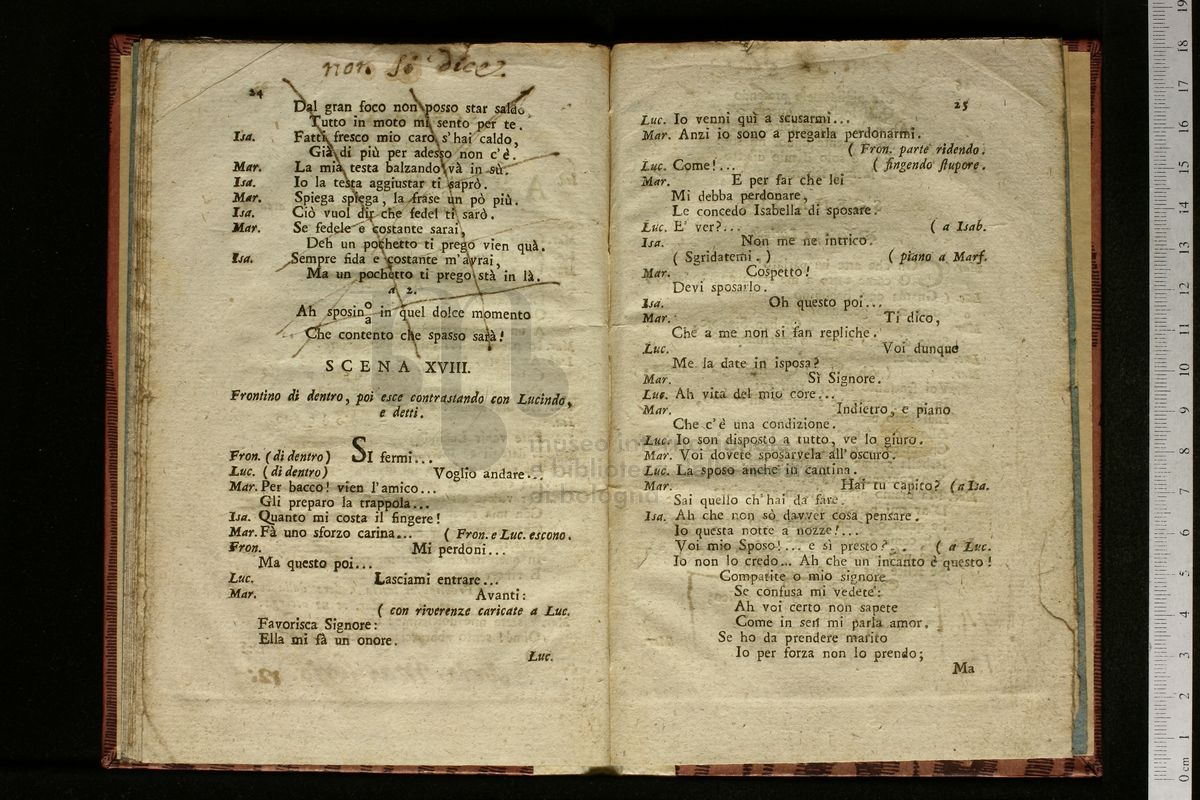 non si dice.
24
Dal gran foco non posso star saldo,
Tutto in moto mi sento per te.
Isa. Fatti fresco mio caro s'hai caldo,
Già di più per adesso non c'è.
Mar. La mia testa balzando và in sù.
Isa. Io la testa aggiustar ti saprò.
Mar. Spiega spiega, la frase un pò più.
Isa. Ciò vuol dir che fedel ti sarò.
Mar. Se fedele e costante sarai,
Deh un pochetto ti prego vien quà.
Isa. Sempre fida e costante m'avrai,
Ma un pochetto ti prego stà in là.
a 2.
Ah sposin o a in quel dolce momento
Che contento che spasso sarà!
SCENA XVIII.
Frontino di dentro, poi esce contrastando con Lucindo,
e detti.
Fron. (di dentro) SI fermi...
Luc. (di dentro) Voglio andare...
Mar. Per bacco! vien l'amico...
Gli preparo la trappola...
Isa. Quanto mi costa il fingere!
Mar. Fà uno sforzo carina... ( Fron. e Luc. escono.
Fron. Mi perdoni...
Ma questo poi...
Luc. Lasciami entrare...
Mar. Avanti:
( con riverenze caricate a Luc.
Favorisca Signore:
Ella mi fà un onore.
Luc.
25
Luc. Io venni quì a scusarmi...
Mar. Anzi io sono a pregarla perdonarmi.
( Fron. parte ridendo.
Luc. Come!... ( fingendo stupore.
Mar. E per far che lei
Mi debba perdonare,
Le concedo Isabella di sposare.
Luc. E' ver?... ( a Isab.
Isa. Non me ne intrico.
( Sgridatemi. ) ( piano a Mars.
Mar. Cospetto!
Devi sposarlo.
Isa. Oh questo poi...
Mar. Ti dico,
Che a me non si fan repliche.
Luc. Voi dunque
Me la date in isposa?
Mar. Sì Signore.
Luc. Ah vita del mio core...
Mar. Indietro, e piano
Che c'è una condizione.
Luc. Io son disposto a tutto, ve lo giuro.
Mar. Voi dovete sposarvela all'oscuro.
Luc. La sposo anche in cantina.
Mar. Hai tu capito? (a Isa.
Sai quello ch'hai da fare.
Isa. Ah che non sò davver cosa pensare.
Io questa notte a nozze!...
Voi mio Sposo!... e sì presto?.. ( a Luc.
Io non lo credo... Ah che un incanto è questo!
Compatite o mio signore
Se confusa mi vedete:
Ah voi certo non sapete
Come in sen mi parla amor.
Se ho da prendere marito
Io per forza non lo prendo;
Ma
museo in
e bibliote
di bologna